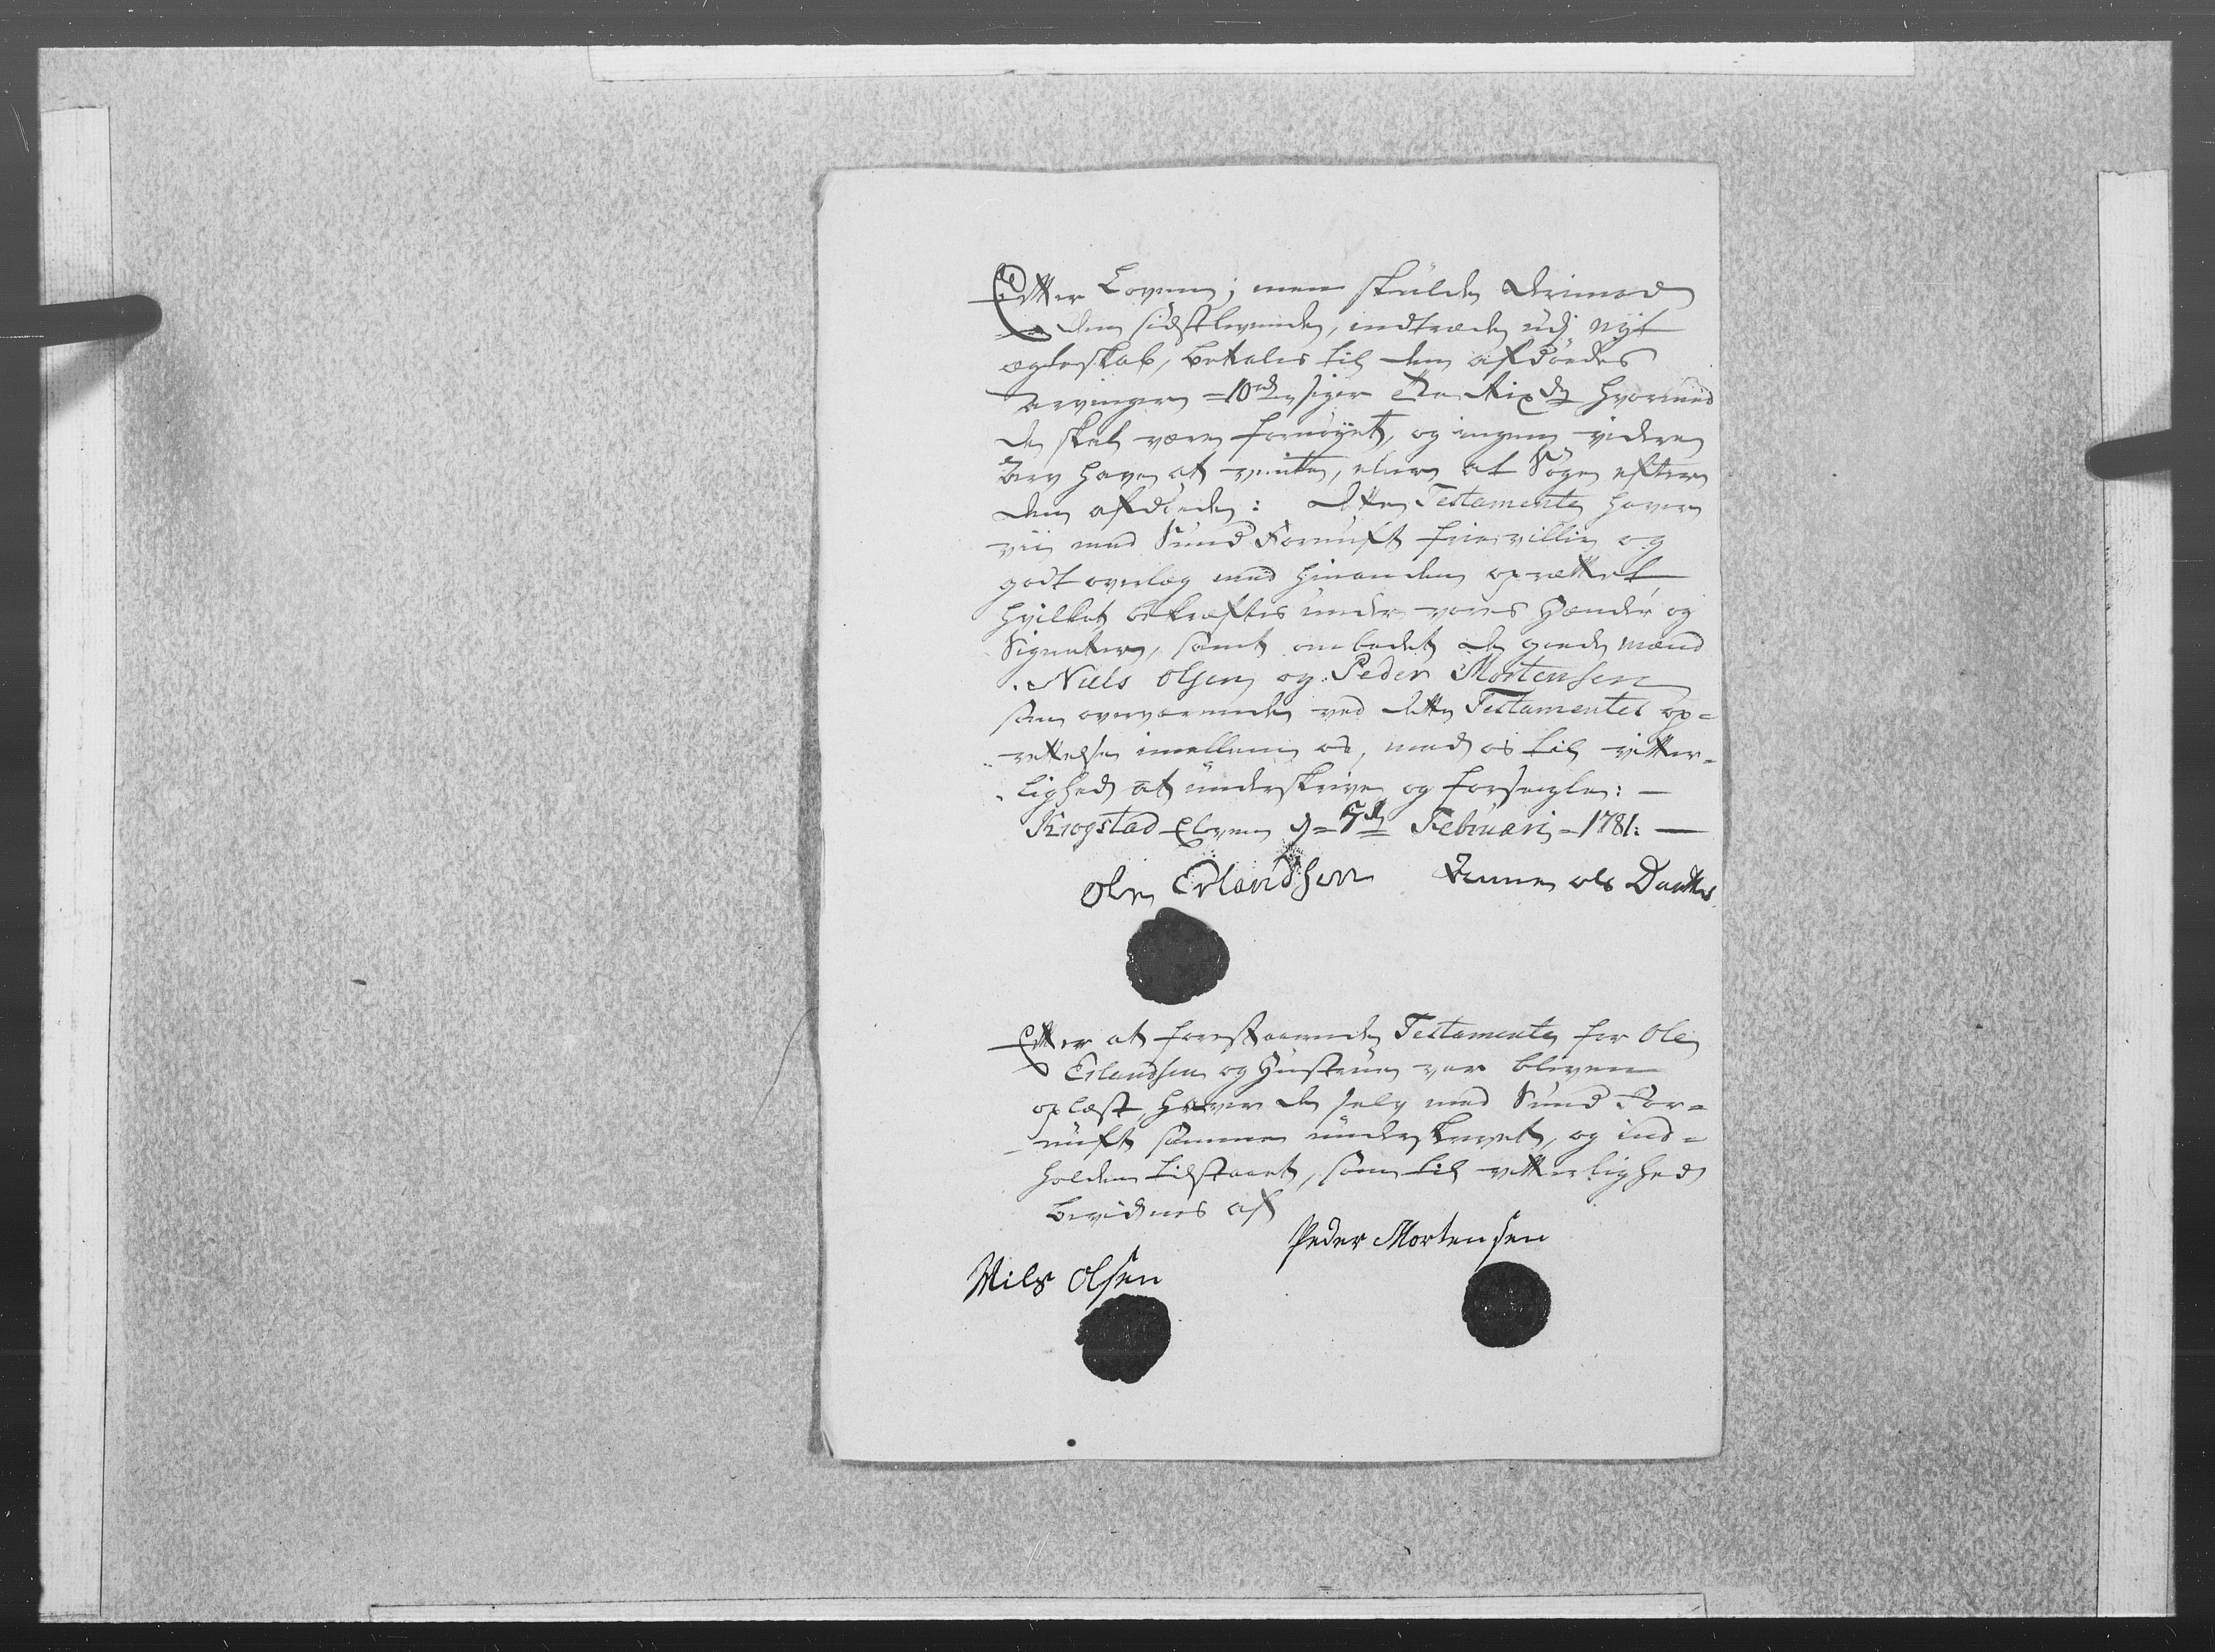 Efter Loven; men skulde derimod
den sidstlevende, indtræde udj nyt
ægteskab, betales til den afdødes
Arvinger = 10 rd siger Tie Rixdr hvormed
de skal være fornøyet, og ingen videre
Arv have at vente, eller at Søge efter
den afdøde: dette Testamente haver
vii med Sund Fornuft frievillig og
godt overlæg med hinanden oprættet
hvilket bekræftes under vores Hænder og
Signeter, samt ombedet de goede mænd
Niels Olsen og Peder Mortensen
som overværende ved dette Testamentes op=
rettelse imellem os, med os til vitter=
lighed at underskrive og forseigle: —
Krogstad Eloven d= 7de Februari = 1781: —
Ole Erlandsen Anne ols Datter
Efter at forestaaende Testamente for Ole
Erlandsen og Hustrue var bleven
oplæst, haver de selv med Sund For=
nuft samme underskrevet, og ind=
holden tilstaaet, som til vitterlighed
bevidnes af
Peder Mortensen
Nils Olsen